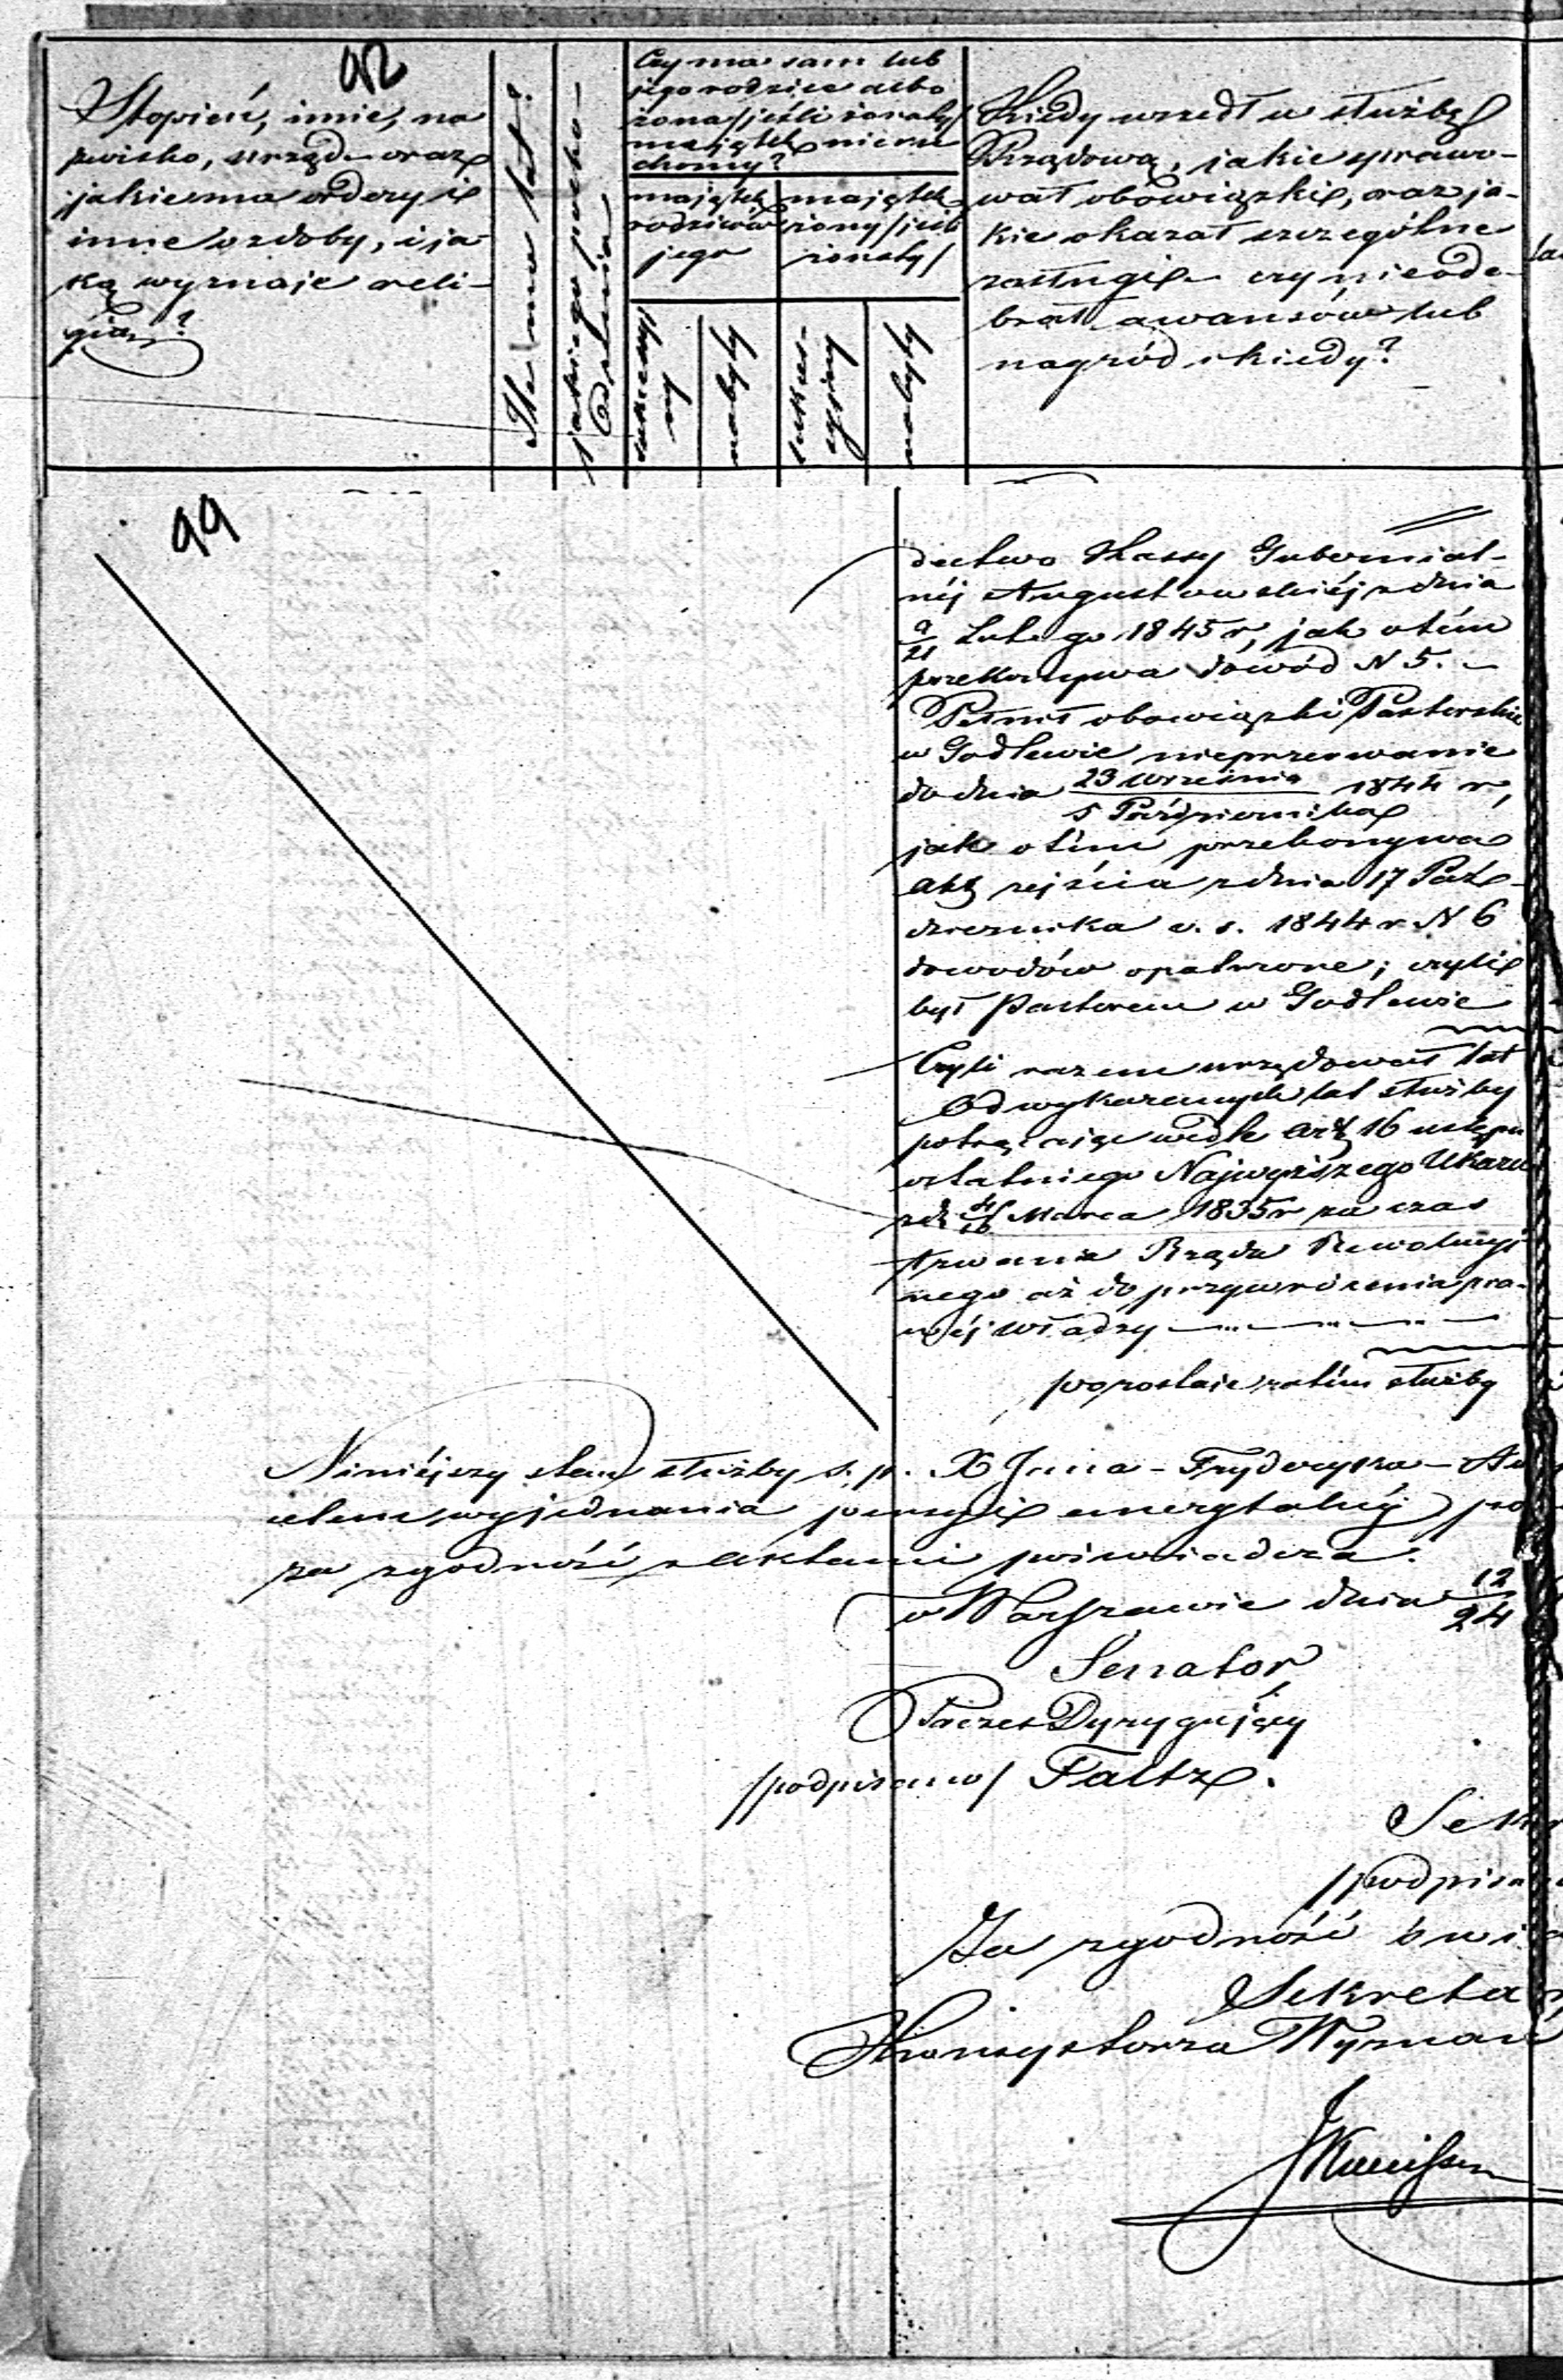 92
Stopień, imie, na
zwisko, urząd oraz
jakie ma ordery i
inne ozdoby, i ja
ką wyznaje reli-
gią?
Ile ma lat?
z jakiego pocho-
dzenia
Czy ma sam lub
jego rodzice albo
żona /jeśli żonaty/
majątek nieru
chomy?
majątek
rodziców
jego
majątek
żony /jeśli
żonaty/
nabyty
nabyty
Kiedy wszedł w służbę
Rządową, jakie sprawo-
wał obowiązki, oraz ja-
kie okazał szczególne
zasługi czy nie ode-
brał awansów lub
nagród i kiedy?
99
dectwo Kassy Gubernial-
néj Augustowskiéj z dnia
9/21 Lutego 1845 r, jak o tém
przekonywa dowód N 5. -
Pełnił obowiązki Pasterskie
w Godlewie nieprzerwanie
do dnia 23 Września / 5 Października 1844 r,
jak o tém przekonywa
akt zejścia z dnia 17 Paź-
dziernika v. s. 1844 r N 6
dowodów opatrzone; czyli
był Pastorem w Godlewie
Czyli razem urzędował lat
Od wykazanych lat służby
potrącając wedle art 16 ustępu
ostatniego Najwyższego Ukazu
Marca 1835 r za czas
trwania Rządu Rewolucyj
nego aż do przywrócenia pra-
wéj władzy
pozostaie zatém służby
Niniéjszy stan służby ś. p. X Jana-Fryderyka-Au
celem wyjednania pensyi emerytalnéj po
za zgodność z aktami poświadcza.
w Warszawie dnia 12/24
Senator
Prezes Dyrygujący
/podpisano/ Faltz.
Sekr
/podpisa
Za zgodność świa
Sekretar
Konsystorza Wyznań